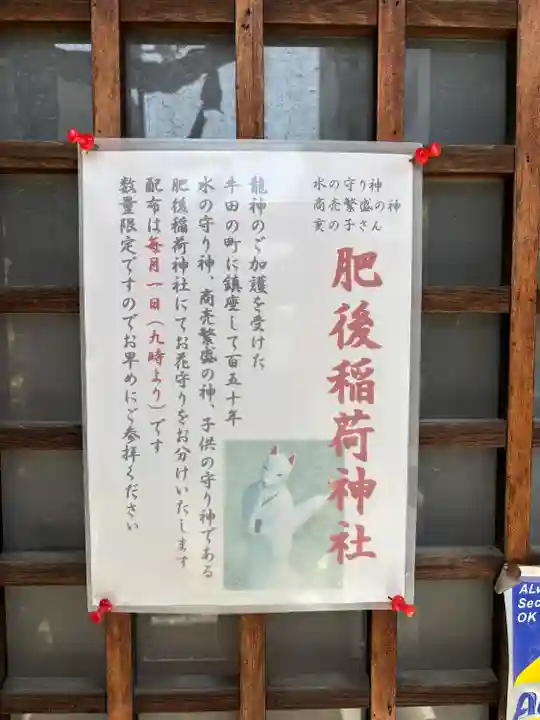 水の守り神
商売繁盛の神
亥の子さん
肥後稲荷神社
龍神のご加護を受けた
牛田の町に鎮座して百五十年
水の守り神、商売繁盛の神、子供の守り神である
肥後稲荷神社にてお花守りをお分けいたします
配布は毎月一日（九時より）です
数量限定ですのでお早めにご参拝ください
OK